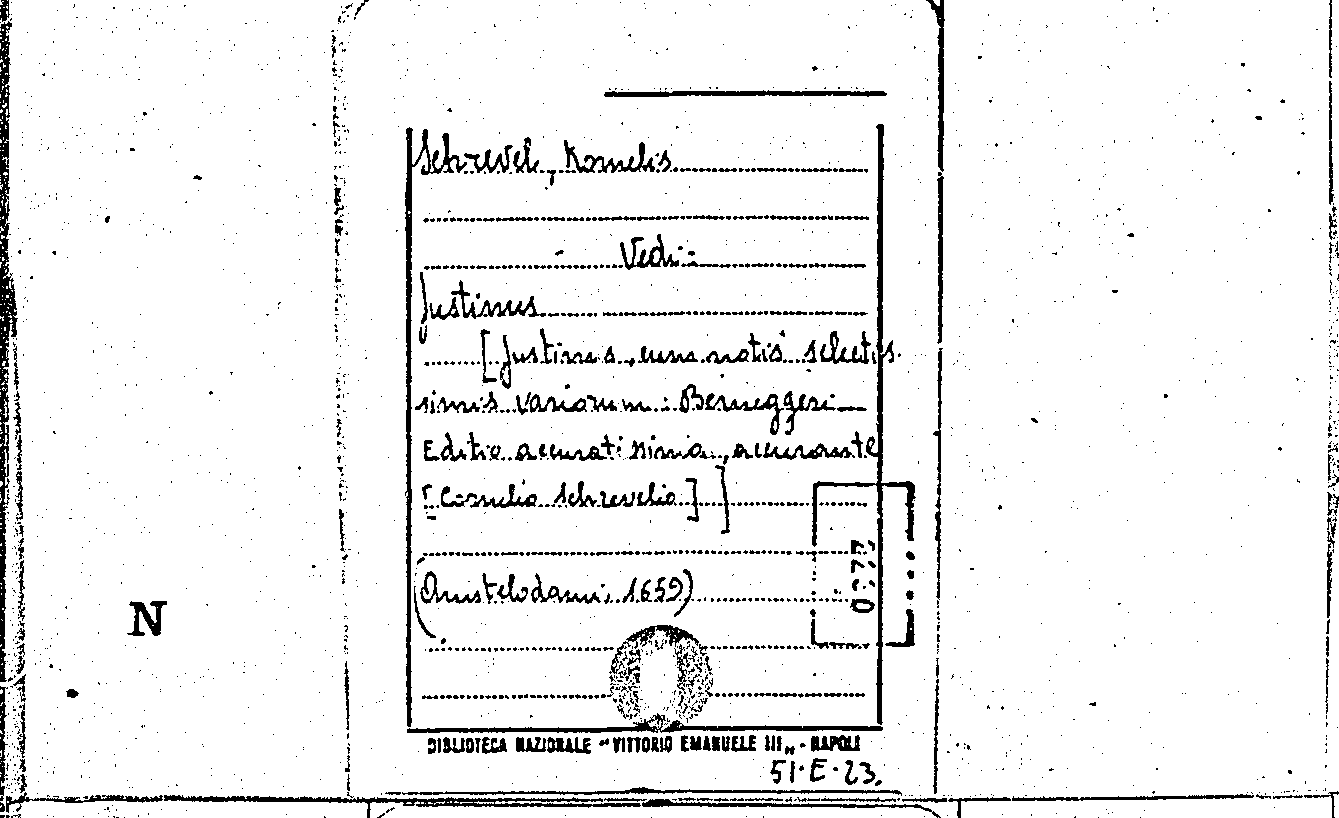 Schrevel, Kornelis
- Vedi:-
Justinus
[Justinus, cum notis selectis-
simis variorum: Berneggeri
Editio accuratissima, accurante
[Cornelio Schrevelio]]
(Amstelodami, 1659)
N
BIBLIOTECA NAZIONALE "VITTORIO EMANUELE III" - NAPOLI
51.E.23.